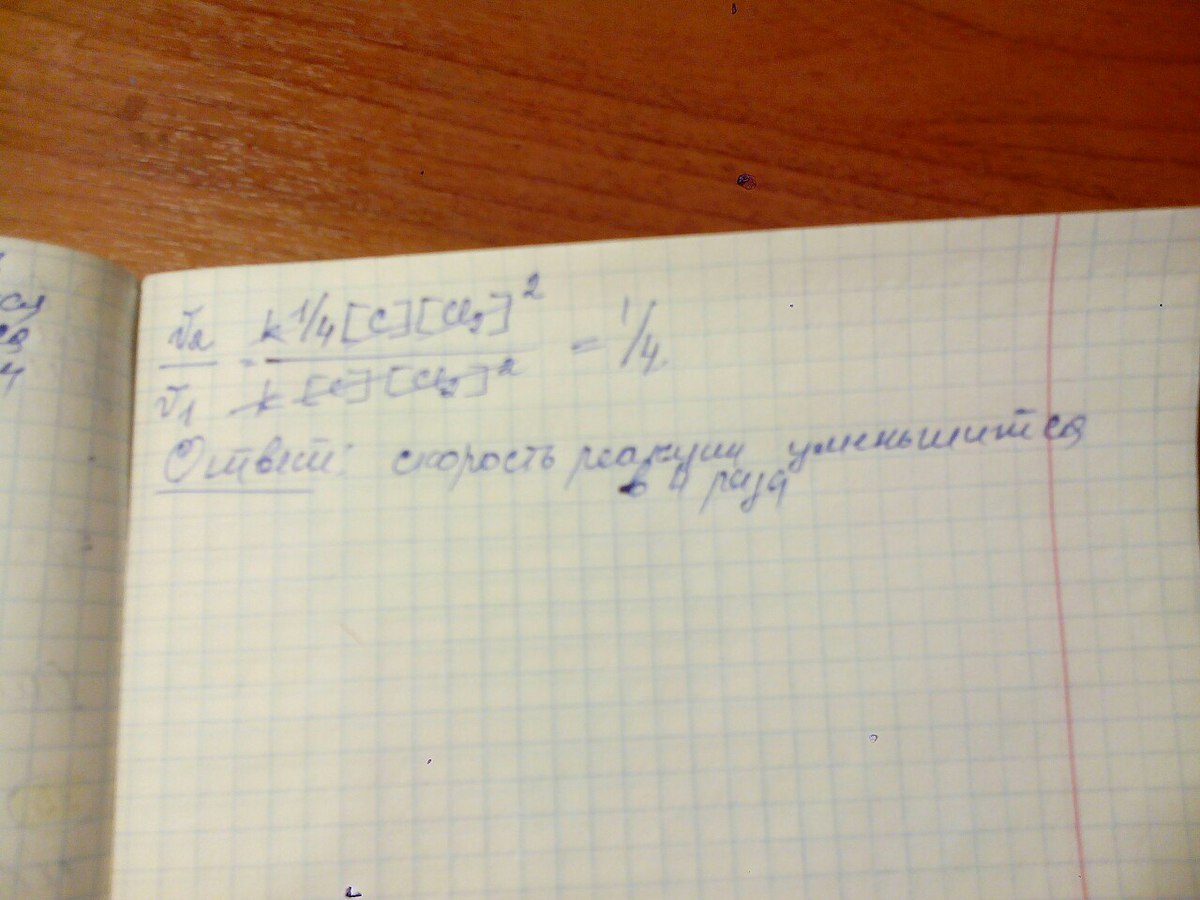 ся
ся
4
v₂ / v₁ = k 1/4 [C][Cl₂]² / k [C][Cl₂]² = 1/4
Ответ: скорость реакции уменьшится
в 4 раза